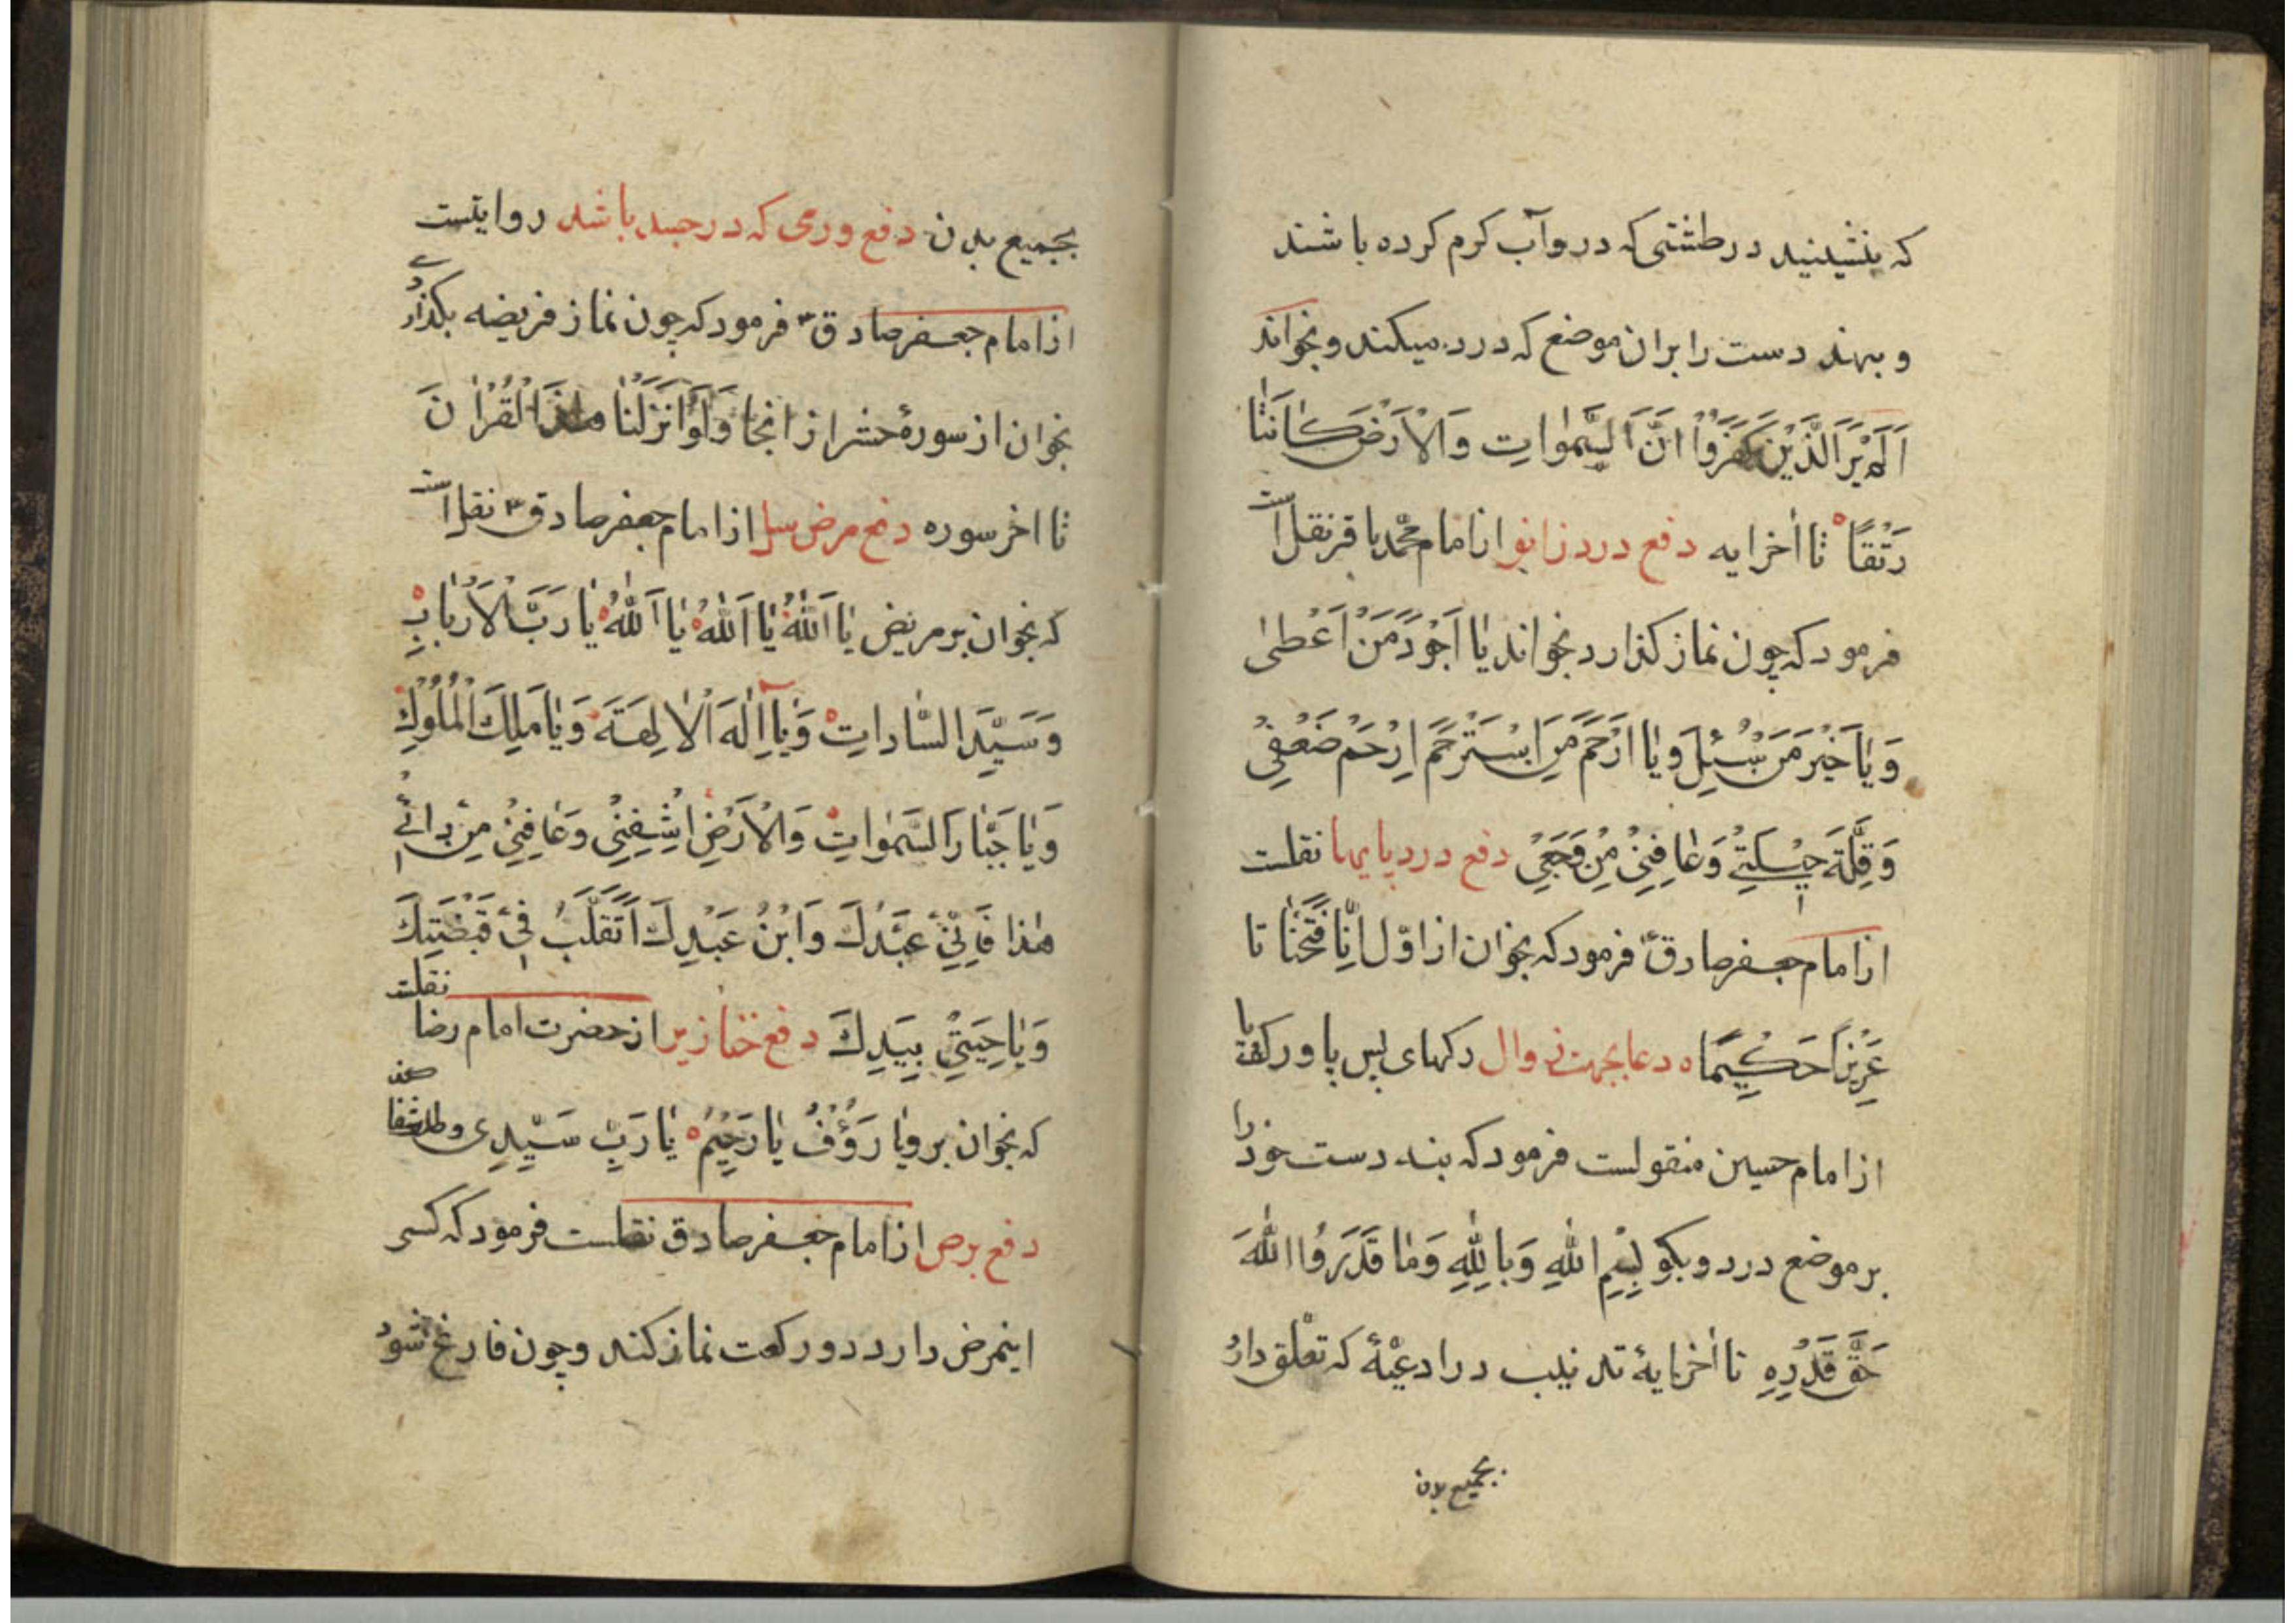 که بنشینید در طشتی که درو آب کرم کرده باشند
و بهند دست را بران موضع که درد میکند و بخواند
اَلَمْ يَرَ الَّذِيْنَ كَفَرُوْا اَنَّ السَّمٰوَاتِ وَالْاَرْضَ كَانَتٰا
رَتْقًا تا اخر ایه دفع درد زانو از امام محمّد باقر نقل است
فرمود که چون نماز کذارد بخواند یٰا اَجْوَدَ مَنْ اَعْطىٰ
وَيٰا خَيْرَ مَنْ سُئِلَ وَيٰا اَرْحَمَ مَنِ اسْتُرْحِمَ اِرْحَمْ ضَعْفِىْ
وَقِلَّةَ حِيْلَتِىْ وَعٰافِنِىْ مِنْ وَجَعِىْ دفع درد پایها نقلست
از امام جعفر صادق ع فرمود که بخوان از اوّل اِنّٰا فَتَحْنٰا تا
عَزِيْزًا حَكِيْمًا دعا بجهت زوال رکهای پس پا و رکها
از امام حسین منقولست فرمود که بنه دست خود را
بر موضع درد و بکو بِسْمِ اللّٰهِ وَبِاللّٰهِ وَمٰا قَدَرُوا اللّٰهَ
حَقَّ قَدْرِهِ تا اخر ایهٔ تذنیب در ادعیهٔ که تعلق دارد
بجمیع بدن
بجمیع بدن دفع ورمی که در جسد باشد روایتست
از امام جعفر صادق ع فرمود که چون نماز فریضه بکذاری
بخوان از سورهٔ حشر از انجا وَلَوْ اَنْزَلْنٰا هٰذَا الْقُرْاٰنَ
تا اخر سوره دفع مرض سل از امام جعفر صادق ع نقل است
که بخوان بر مریض یٰا اَللّٰهُ یٰا اَللّٰهُ یٰا اَللّٰهُ یٰا رَبَّ الْاَرْبٰابِ
وَسَيِّدَ السّٰادٰاتِ وَيٰا اِلٰهَ الْاٰلِهَةِ وَيٰا مٰلِكَ الْمُلُوْكِ
وَيٰا جَبّٰارَ السَّمٰوٰاتِ وَالْاَرْضِ اِشْفِنِىْ وَعٰافِنِىْ مِنْ دٰائِىْ
هٰذٰا فَاِنِّىْ عَبْدُكَ وَابْنُ عَبْدِكَ اَتَقَلَّبُ فِىْ قَبْضَتِكَ
وَنٰاصِيَتِىْ بِيَدِكَ دفع خنازیر از حضرت امام رضا نقلست
که بخوان برو یٰا رَؤُفُ یٰا رَحِيْمُ یٰا رَبِّ سَيِّدِى و طلب شفا کند
دفع برص از امام جعفر صادق نقلست فرمود که کسی
اینمرض دارد دو رکعت نماز کند و چون فارغ شود